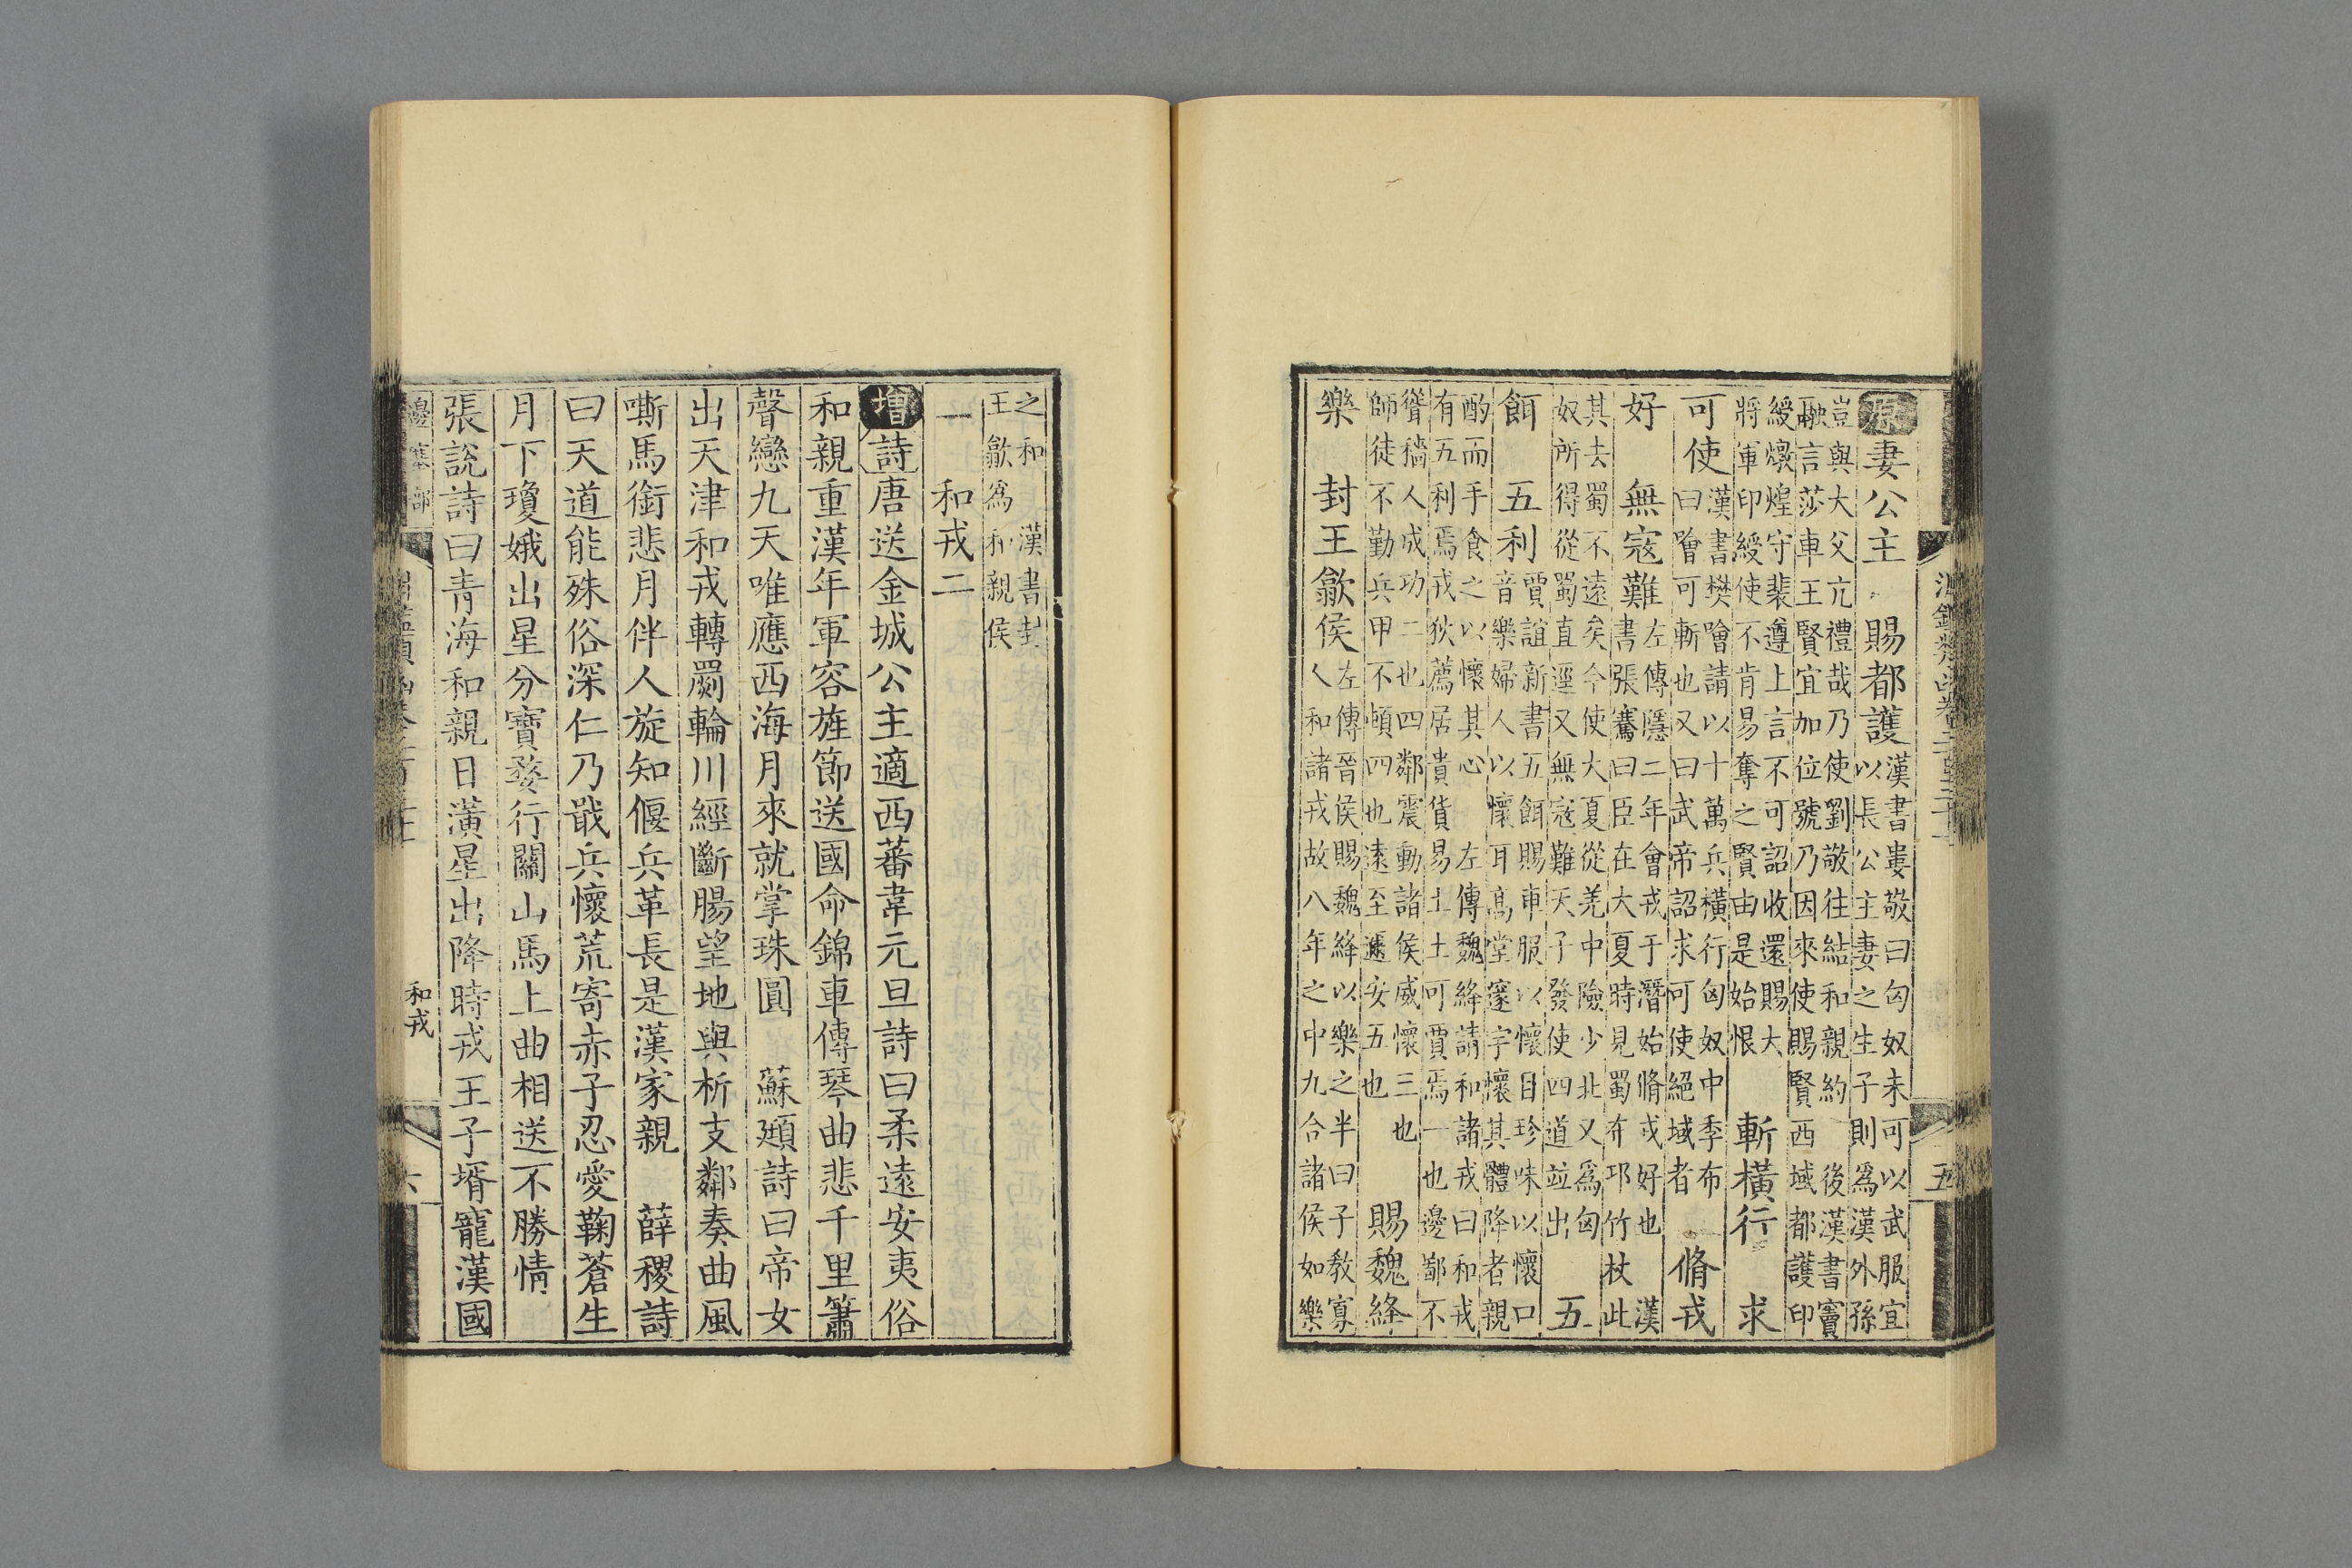 淵鑑類函卷二百三十二 五
原 妻公主 賜都護 漢書婁敬曰匈奴未可以武服宜
以長公主妻之生子則爲漢外孫
豈與大父亢禮哉乃使劉敬往結和親約 後漢書竇
融言莎車王賢宜加位號乃因來使賜賢西域都護印
綬燉煌守裴遵上言不可詔收還賜大
將軍印綬使不肯易奪之賢由是始恨 斬橫行 求
可使 漢書樊噲請以十萬兵橫行匈奴中季布
曰噲可斬也又曰武帝詔求可使絕域者 脩戎
好 無寇難 左傳隱二年會戎于潛始脩戎好也 漢
書張騫曰臣在大夏時見蜀布邛竹杖此
其去蜀不遠矣今使大夏從羌中險少北又爲匈
奴所得從蜀直逕又無寇難天子發使四道並出 五
餌 五利 賈誼新書五餌賜車服以懷目珍味以懷口
音樂婦人以懷耳高堂邃宇懷其體降者親
酌而手食之以懷其心 左傳魏絳請和諸戎曰和戎
有五利焉戎狄薦居貴貨易土土可賈焉一也邊鄙不
聳穡人成功二也四鄰震動諸侯威懷三也
師徒不勤兵甲不頓四也遠至邇安五也 賜魏絳
樂 封王歙侯 左傳晉侯賜魏絳以樂之半曰子教寡
人和諸戎故八年之中九合諸侯如樂
之和 漢書封
王歙爲和親侯
一 和戎二
增 詩唐送金城公主適西蕃韋元旦詩曰柔遠安夷俗
和親重漢年軍容旌節送國命錦車傳琴曲悲千里簫
聲戀九天唯應西海月來就掌珠圓 蘇頲詩曰帝女
出天津和戎轉罽輪川經斷腸望地與析支鄰奏曲風
嘶馬銜悲月伴人旋知偃兵革長是漢家親 薛稷詩
曰天道能殊俗深仁乃戢兵懷荒寄赤子忍愛鞠蒼生
月下瓊娥出星分寶婺行關山馬上曲相送不勝情
張說詩曰青海和親日潢星出降時戎王子壻寵漢國
邊塞部 和戎 六